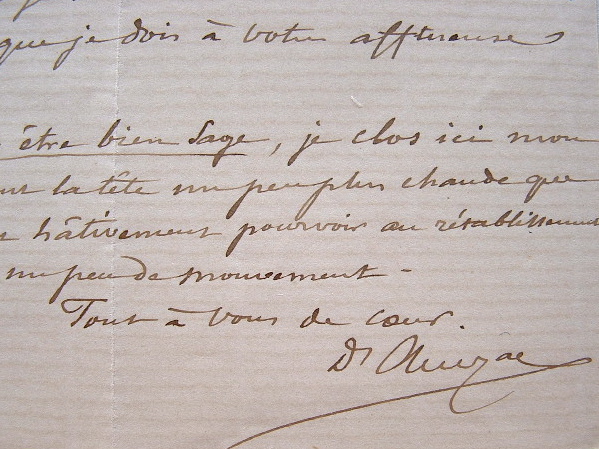 que je dois à votre affreuse
être bien sage, je clos ici mon
la tête un peu plus chaude que
hâtivement pourvoir au rétablissement
un peu de mouvement -
Tout à vous de cœur.
Dr